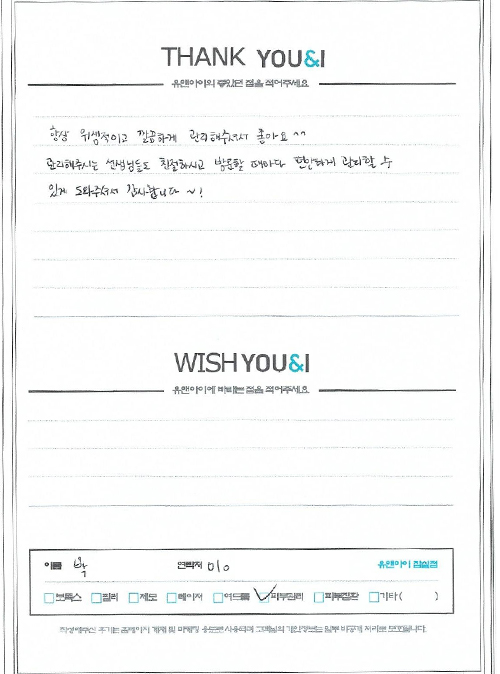 THANK YOU&I
유앤아이의 좋았던 점을 적어주세요.
항상 위생적이고 깔끔하게 관리해주셔서 좋아요 ^^
관리해주시는 선생님들도 친절하시고 방문할 때마다 편안하게 관리할 수
있게 도와주셔서 감사합니다 ~!
WISH YOU&I
유앤아이에 바라는 점을 적어주세요.
이름 박 연락처 010 유앤아이 잠실점
보톡스 필러 제모 레이저 여드름 피부관리 피부질환 기타( )
작성해주신 후기는 홈페이지 게재 및 마케팅 용도로 사용되며 고객님의 개인정보는 일부 비공개 처리로 보호됩니다.